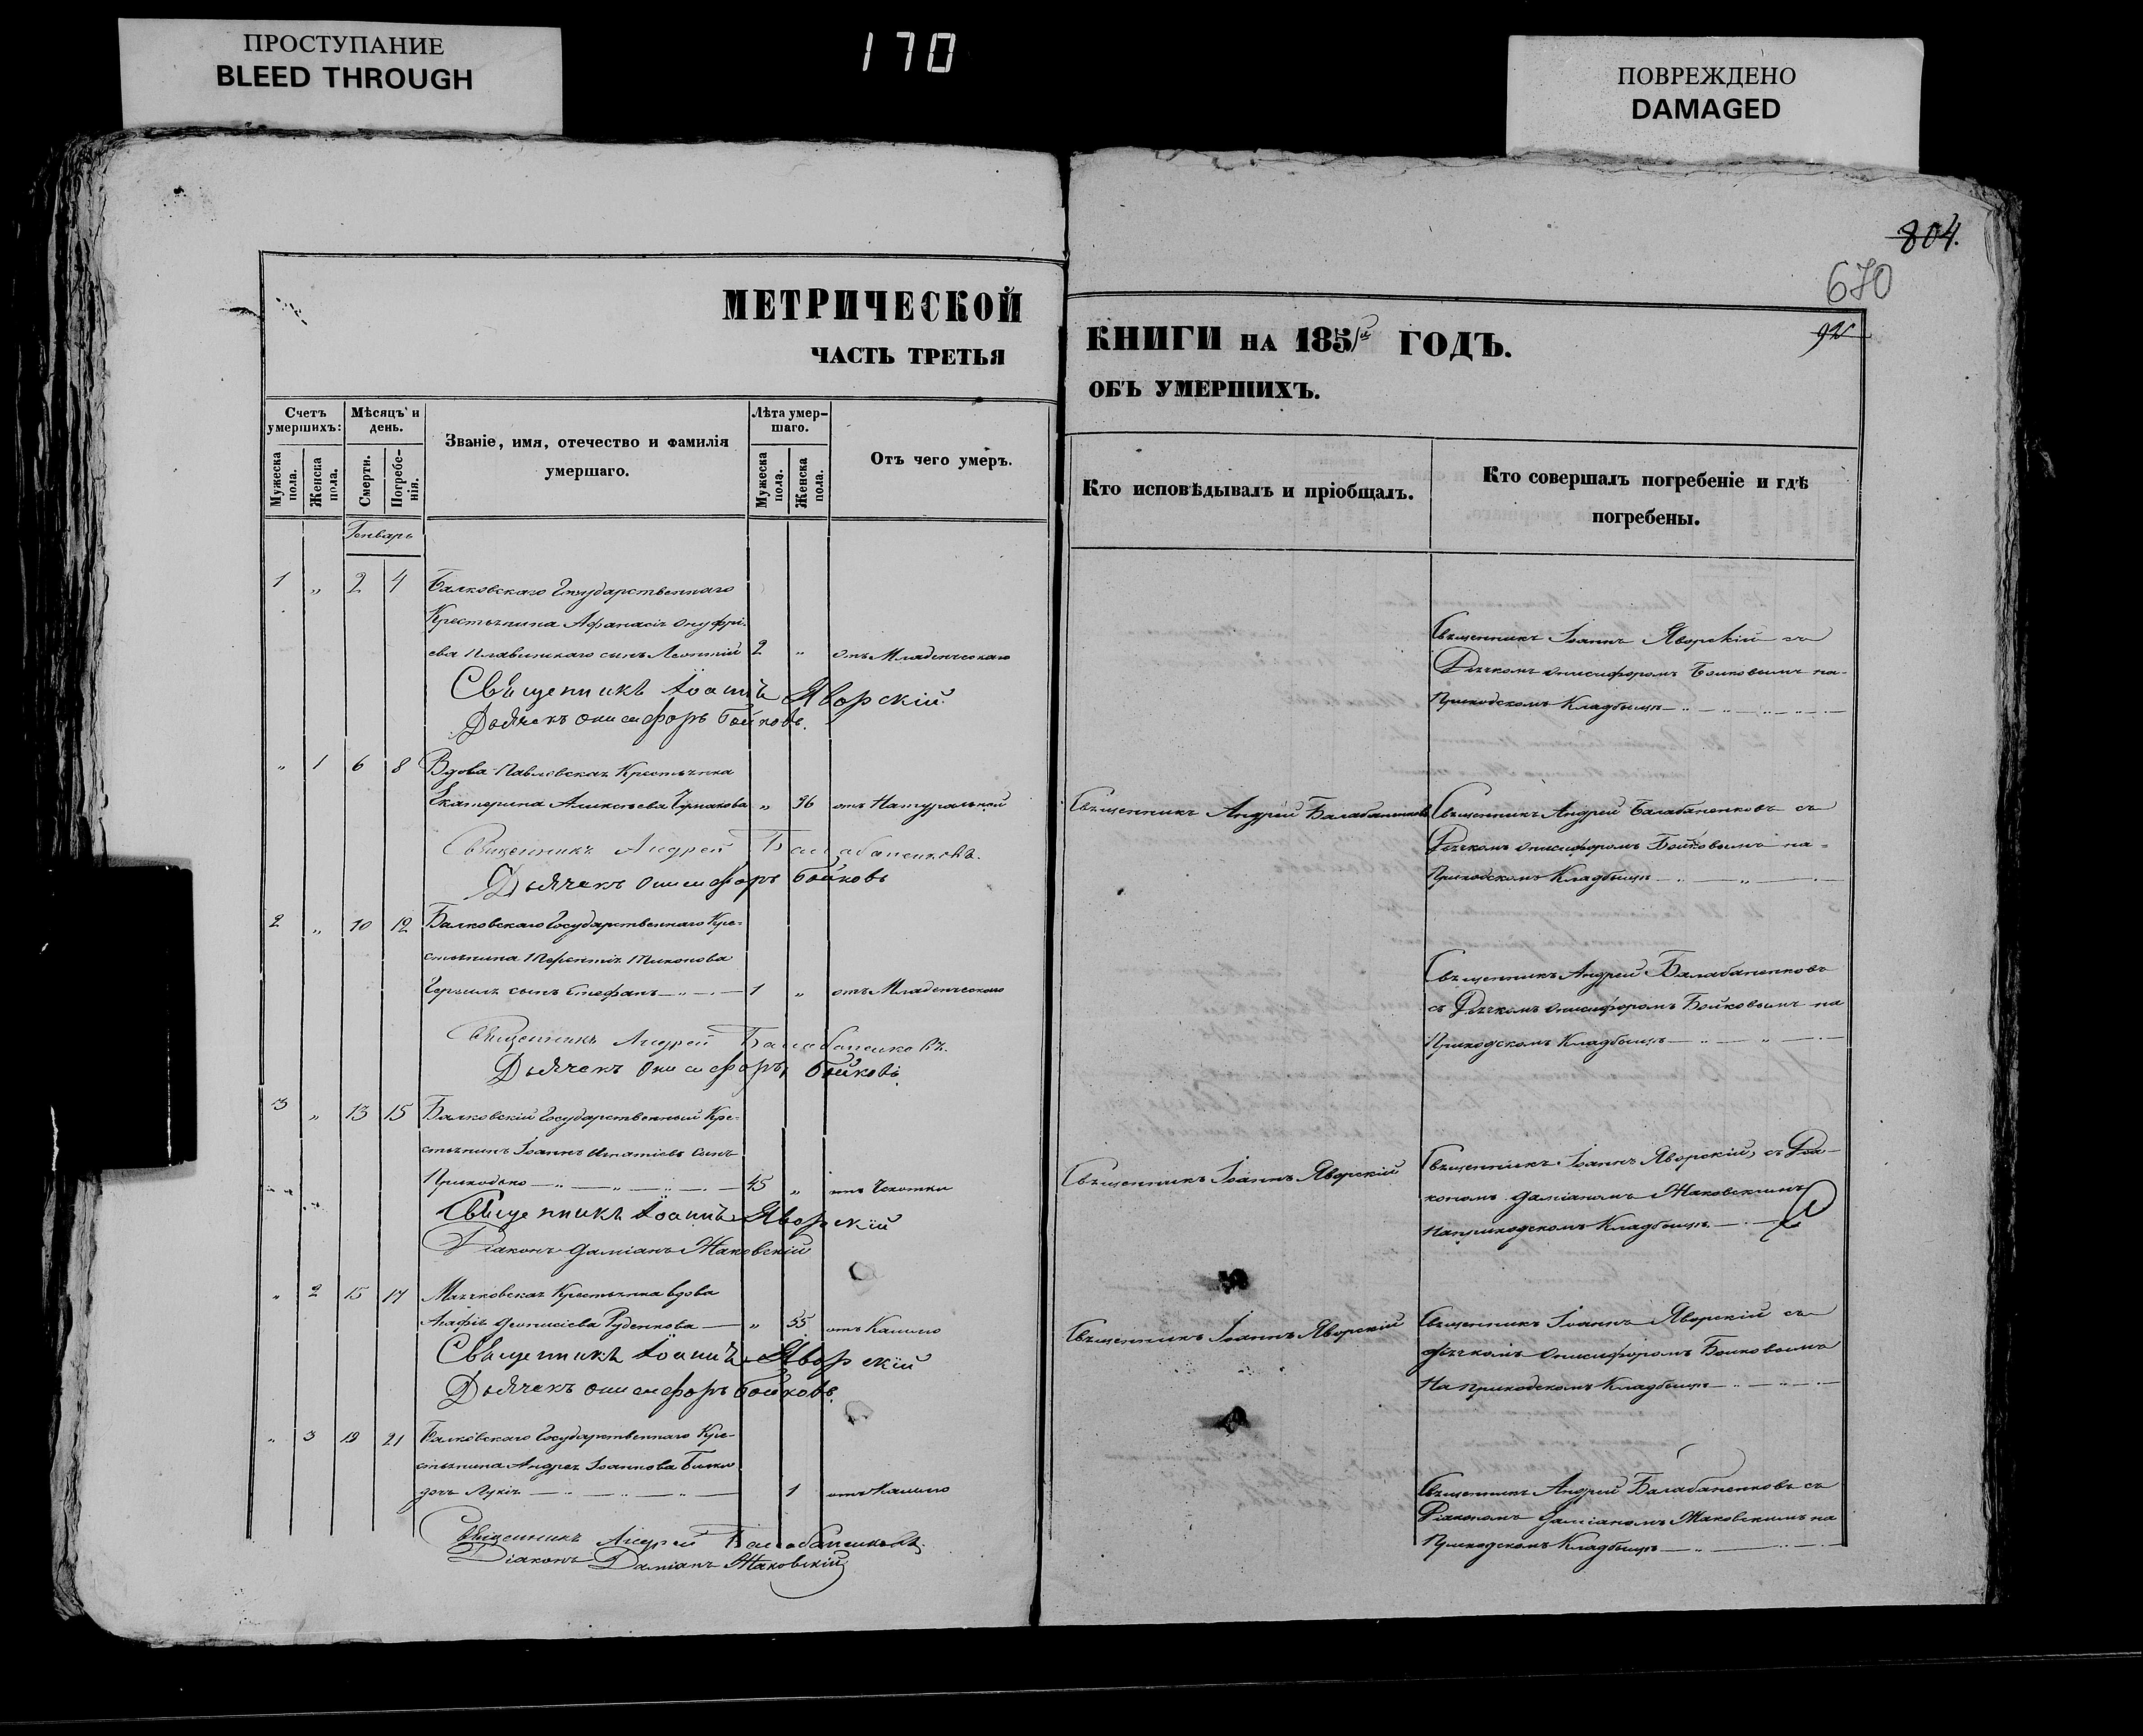 ПРОСТУПАНИЕ
BLEED THROUGH
170
ПОВРЕЖДЕНО
DAMAGED
804.
670
МЕТРИЧЕСКОЙ
ЧАСТЬ ТРЕТЬЯ
КНИГИ НА 1851й ГОДЪ.
ОБЪ УМЕРШИХЪ.
Счетъ умершихъ:
Мужеска пола.
Женска пола.
Мѣсяцъ и день.
Смерти.
Погребенія.
Званіе, имя, отечество и фамилія
умершаго.
Лѣта умер-
шаго.
Мужеска пола.
Женска пола.
Отъ чего умеръ.
Кто исповѣдывалъ и пріобщалъ.
Кто совершалъ погребеніе и гдѣ
погребены.
Генварь
1 „ 2 4 Балковскаго Государственнаго
Крестьянина Аѳанасія Онуфрі-
ева сынъ Леонтій 2 „ отъ Младенческаго
Священникъ Іоаннъ Яворскій съ
Дьячкомъ Онисифоромъ Бойковымъ на
Приходскомъ Кладбищѣ
Священникъ Іоаннъ Яворскій
Дьячекъ Онисифоръ Бойковъ.
„ 1 6 8 Вдова Павловская Крестьянка
Екатерина Алексѣева „ 96 отъ Натуральной
Священникъ Андрей Балабаненковъ
Священникъ Андрей Балабаненковъ съ
Дьячкомъ Онисифоромъ Бойковымъ на
Приходскомъ Кладбищѣ
Священникъ Андрей Балабаненковъ.
Дьячекъ Онисифоръ Бойковъ
2 „ 10 12 Балковскаго Государственнаго Кре-
стьянина Терентія
сынъ Стефанъ 1 „ отъ Младенческаго
Священникъ Андрей Балабаненковъ
съ Дьячкомъ Онисифоромъ Бойковымъ на
Приходскомъ Кладбищѣ
Священникъ Андрей Балабаненковъ.
Дьячекъ Онисифоръ Бойковъ
3 „ 13 15 Балковскій Государственный Кре-
стьянинъ Іоаннъ Игнатіевъ сынъ
Приходько 45 „ отъ Чахотки
Священникъ Іоаннъ Яворскій
Священникъ Іоаннъ Яворскій, съ Діа-
кономъ Даміаномъ Жаковскимъ
на приходскомъ Кладбищѣ
Священникъ Іоаннъ Яворскій
Діаконъ Даміанъ Жаковскій
„ 2 15 17 Крестьянка вдова
Агафія Діонисіева Руденкова „ 55 отъ Кашлю
Священникъ Іоаннъ Яворскій
Священникъ Іоаннъ Яворскій съ
Дьячкомъ Онисифоромъ Бойковымъ
На приходскомъ Кладбищѣ
Священникъ Іоаннъ Яворскій
Дьячекъ Онисифоръ Бойковъ.
„ 3 19 21 Балковскаго Государственнаго Кре-
стьянина Андрея Іоаннова
дочь Лукія 1 отъ Кашлю
Священникъ Андрей Балабаненковъ съ
Діакономъ Даміаномъ Жаковскимъ на
Приходскомъ Кладбищѣ
Священникъ Андрей Балабаненковъ.
Діаконъ Даміанъ Жаковскій